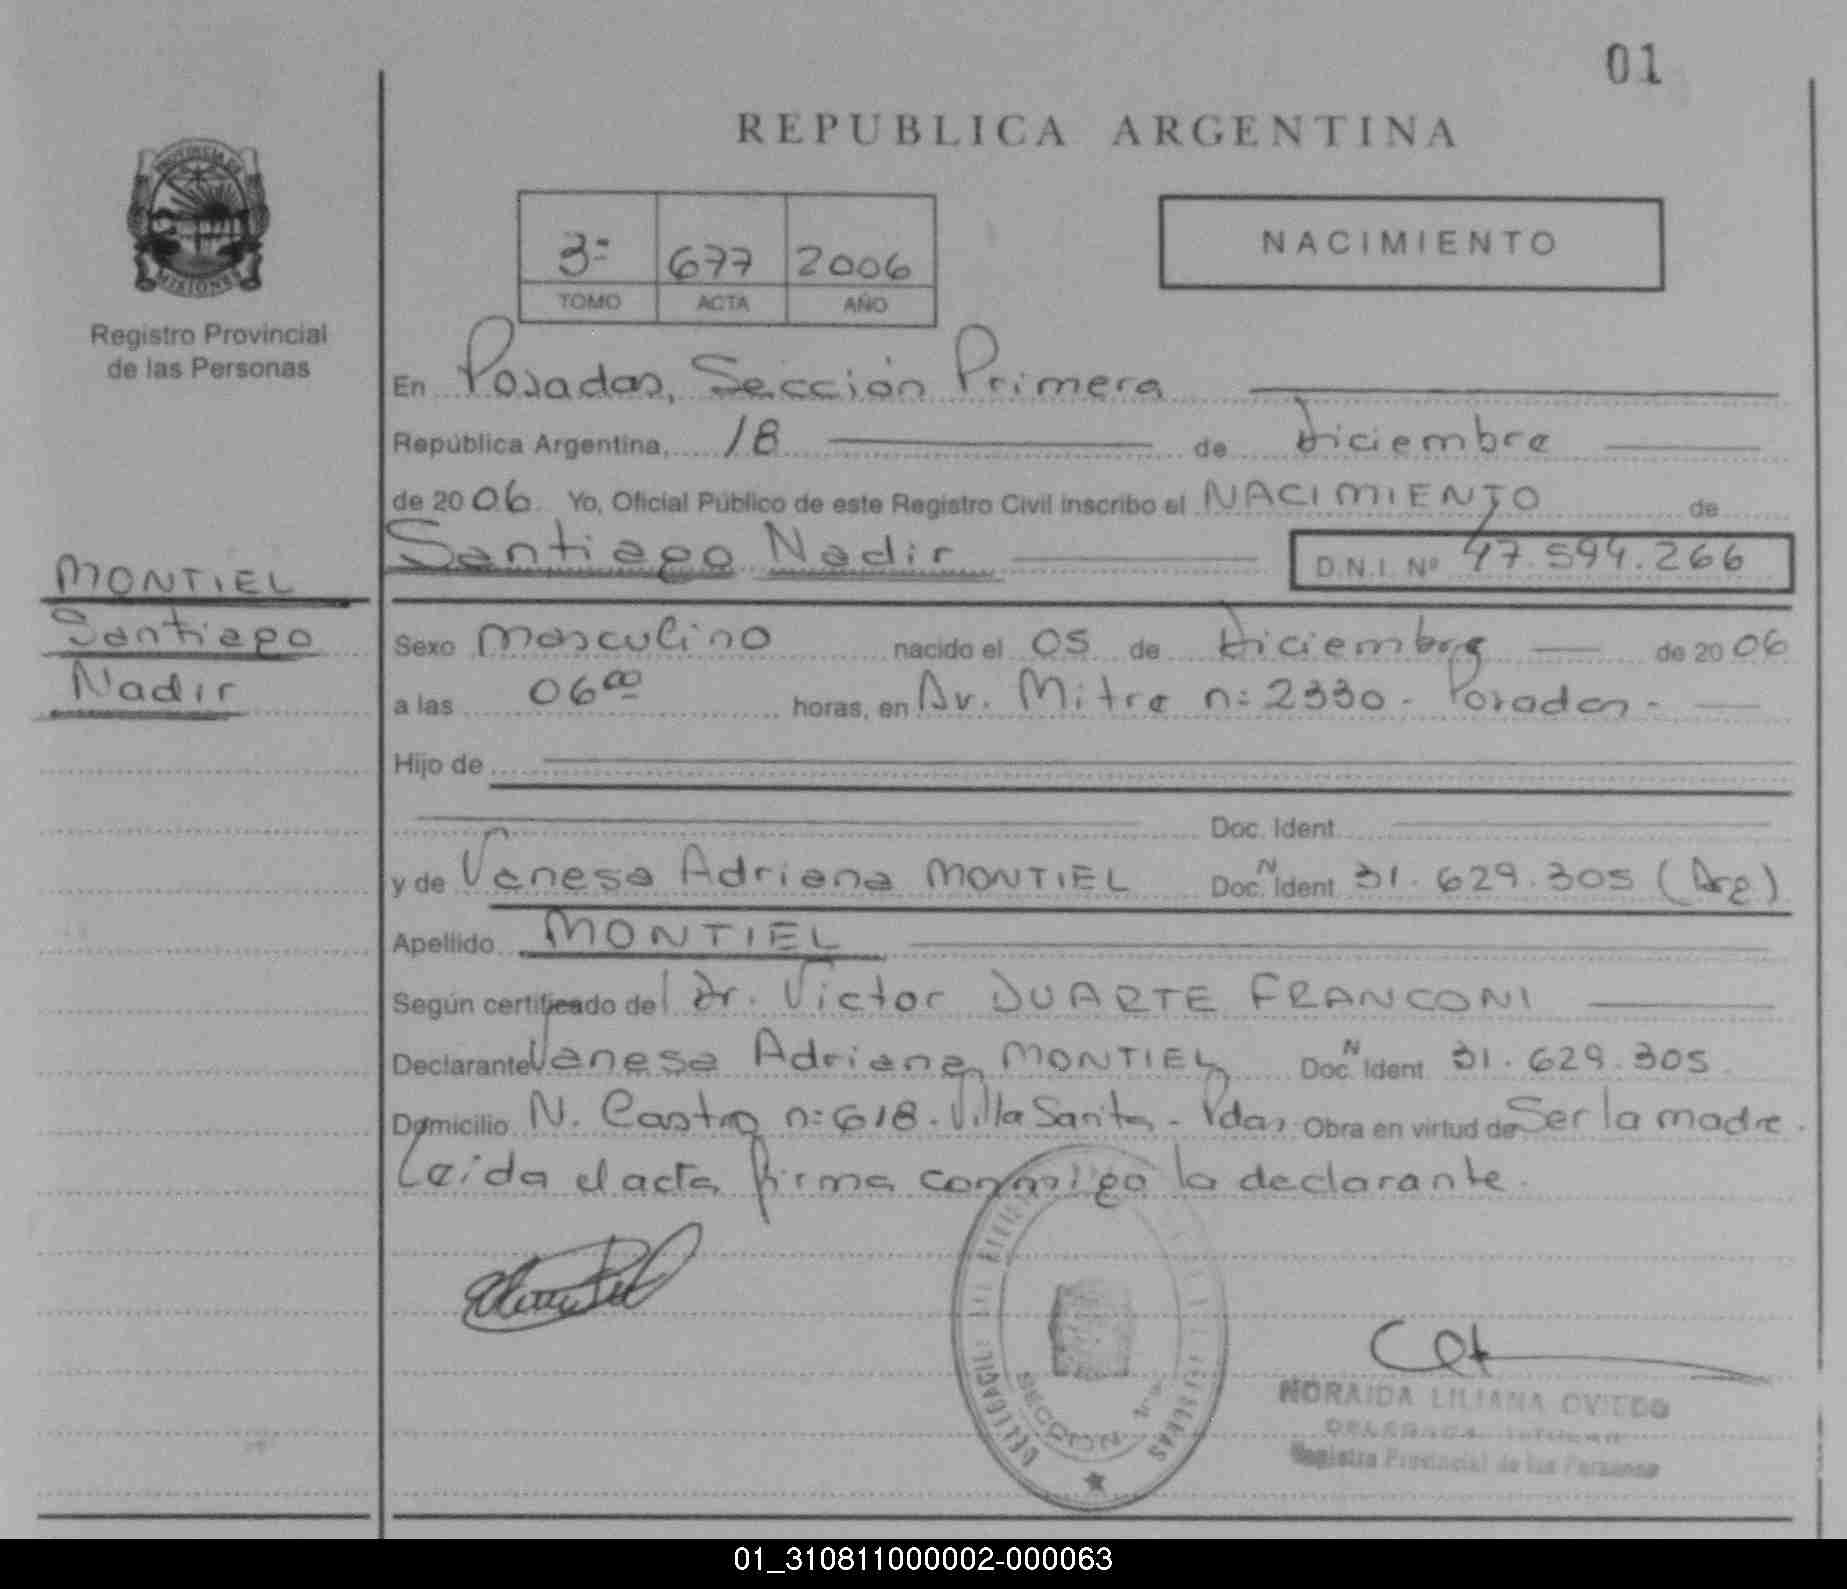 01
REPUBLICA ARGENTINA
PROVINCIA DE
MISIONES
Registro Provincial
de las Personas
3º 677 2006
TOMO ACTA AÑO
NACIMIENTO
En Posadas, Sección Primera
República Argentina, 18 de Diciembre
de 2006 Yo, Oficial Público de este Registro Civil inscribo el NACIMIENTO de
Santiago Nadir D.N.I. Nº 47.594.266
MONTIEL
Santiago
Nadir
Sexo Masculino nacido el 05 de Diciembre de 2006
a las 06 00 horas, en Av. Mitre nº 2330 - Posadas -
Hijo de
Doc. Ident.
y de Vanesa Adriana MONTIEL Doc. N Ident. 31.629.305 (Arg)
Apellido MONTIEL
Según certificado del Dr. Victor DUARTE FRANCONI
Declarante Vanesa Adriana MONTIEL Doc. N Ident. 31.629.305
Domicilio N. Castro nº 618 - Villa Sarita - Pdas Obra en virtud de Ser la madre.
Leída el acta firma conmigo la declarante.
SECCION 1ra
NORAIDA LILIANA OVIEDO
DELEGADA TITULAR
Registro Provincial de las Personas
01_310811000002-000063